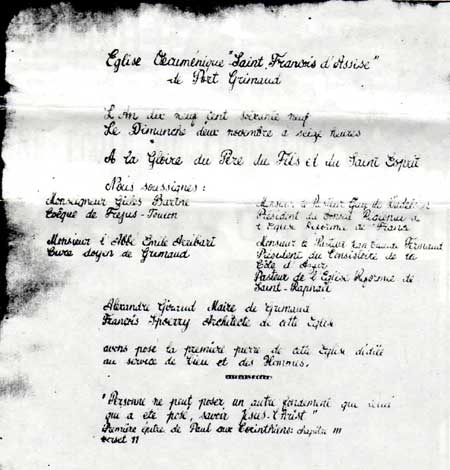 Eglise Œcuménique "Saint François d'Assise"
de Port Grimaud
L'An dix neuf cent soixante neuf
Le Dimanche deux novembre a seize heures
A la Gloire du Père du Fils et du Saint Esprit
Nous soussignes :
Monseigneur Gilles Barthe
Evêque de Frejus-Toulon
Monsieur l'Abbé Emile
Cure doyen de Grimaud
Monsieur le Pasteur Guy de
Président du Conseil Régional de
l'Eglise Reforme de France
Monsieur le Pasteur
Président du Consistoire de la
Côte d'Azur
Pasteur de l'Eglise Reforme de
Saint-Raphaël
Alexandre Giraud Maire de Grimaud
François Spoerry Architecte de cette Eglise
avons posé la première pierre de cette Eglise dédiée
au service de Dieu et des Hommes.
"Personne ne peut poser un autre fondement que celui
qui a ete posé, savoir Jésus-Christ"
Première épitre de Paul aux Corinthiens: chapitre III
verset 11